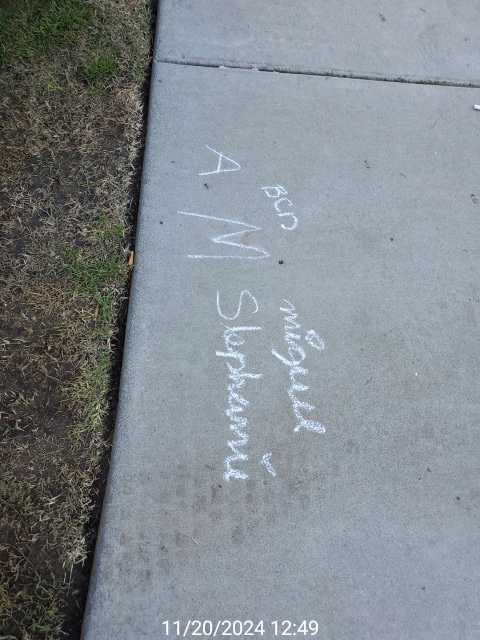 BCD miguel
A M Stephanie
11/20/2024 12:49